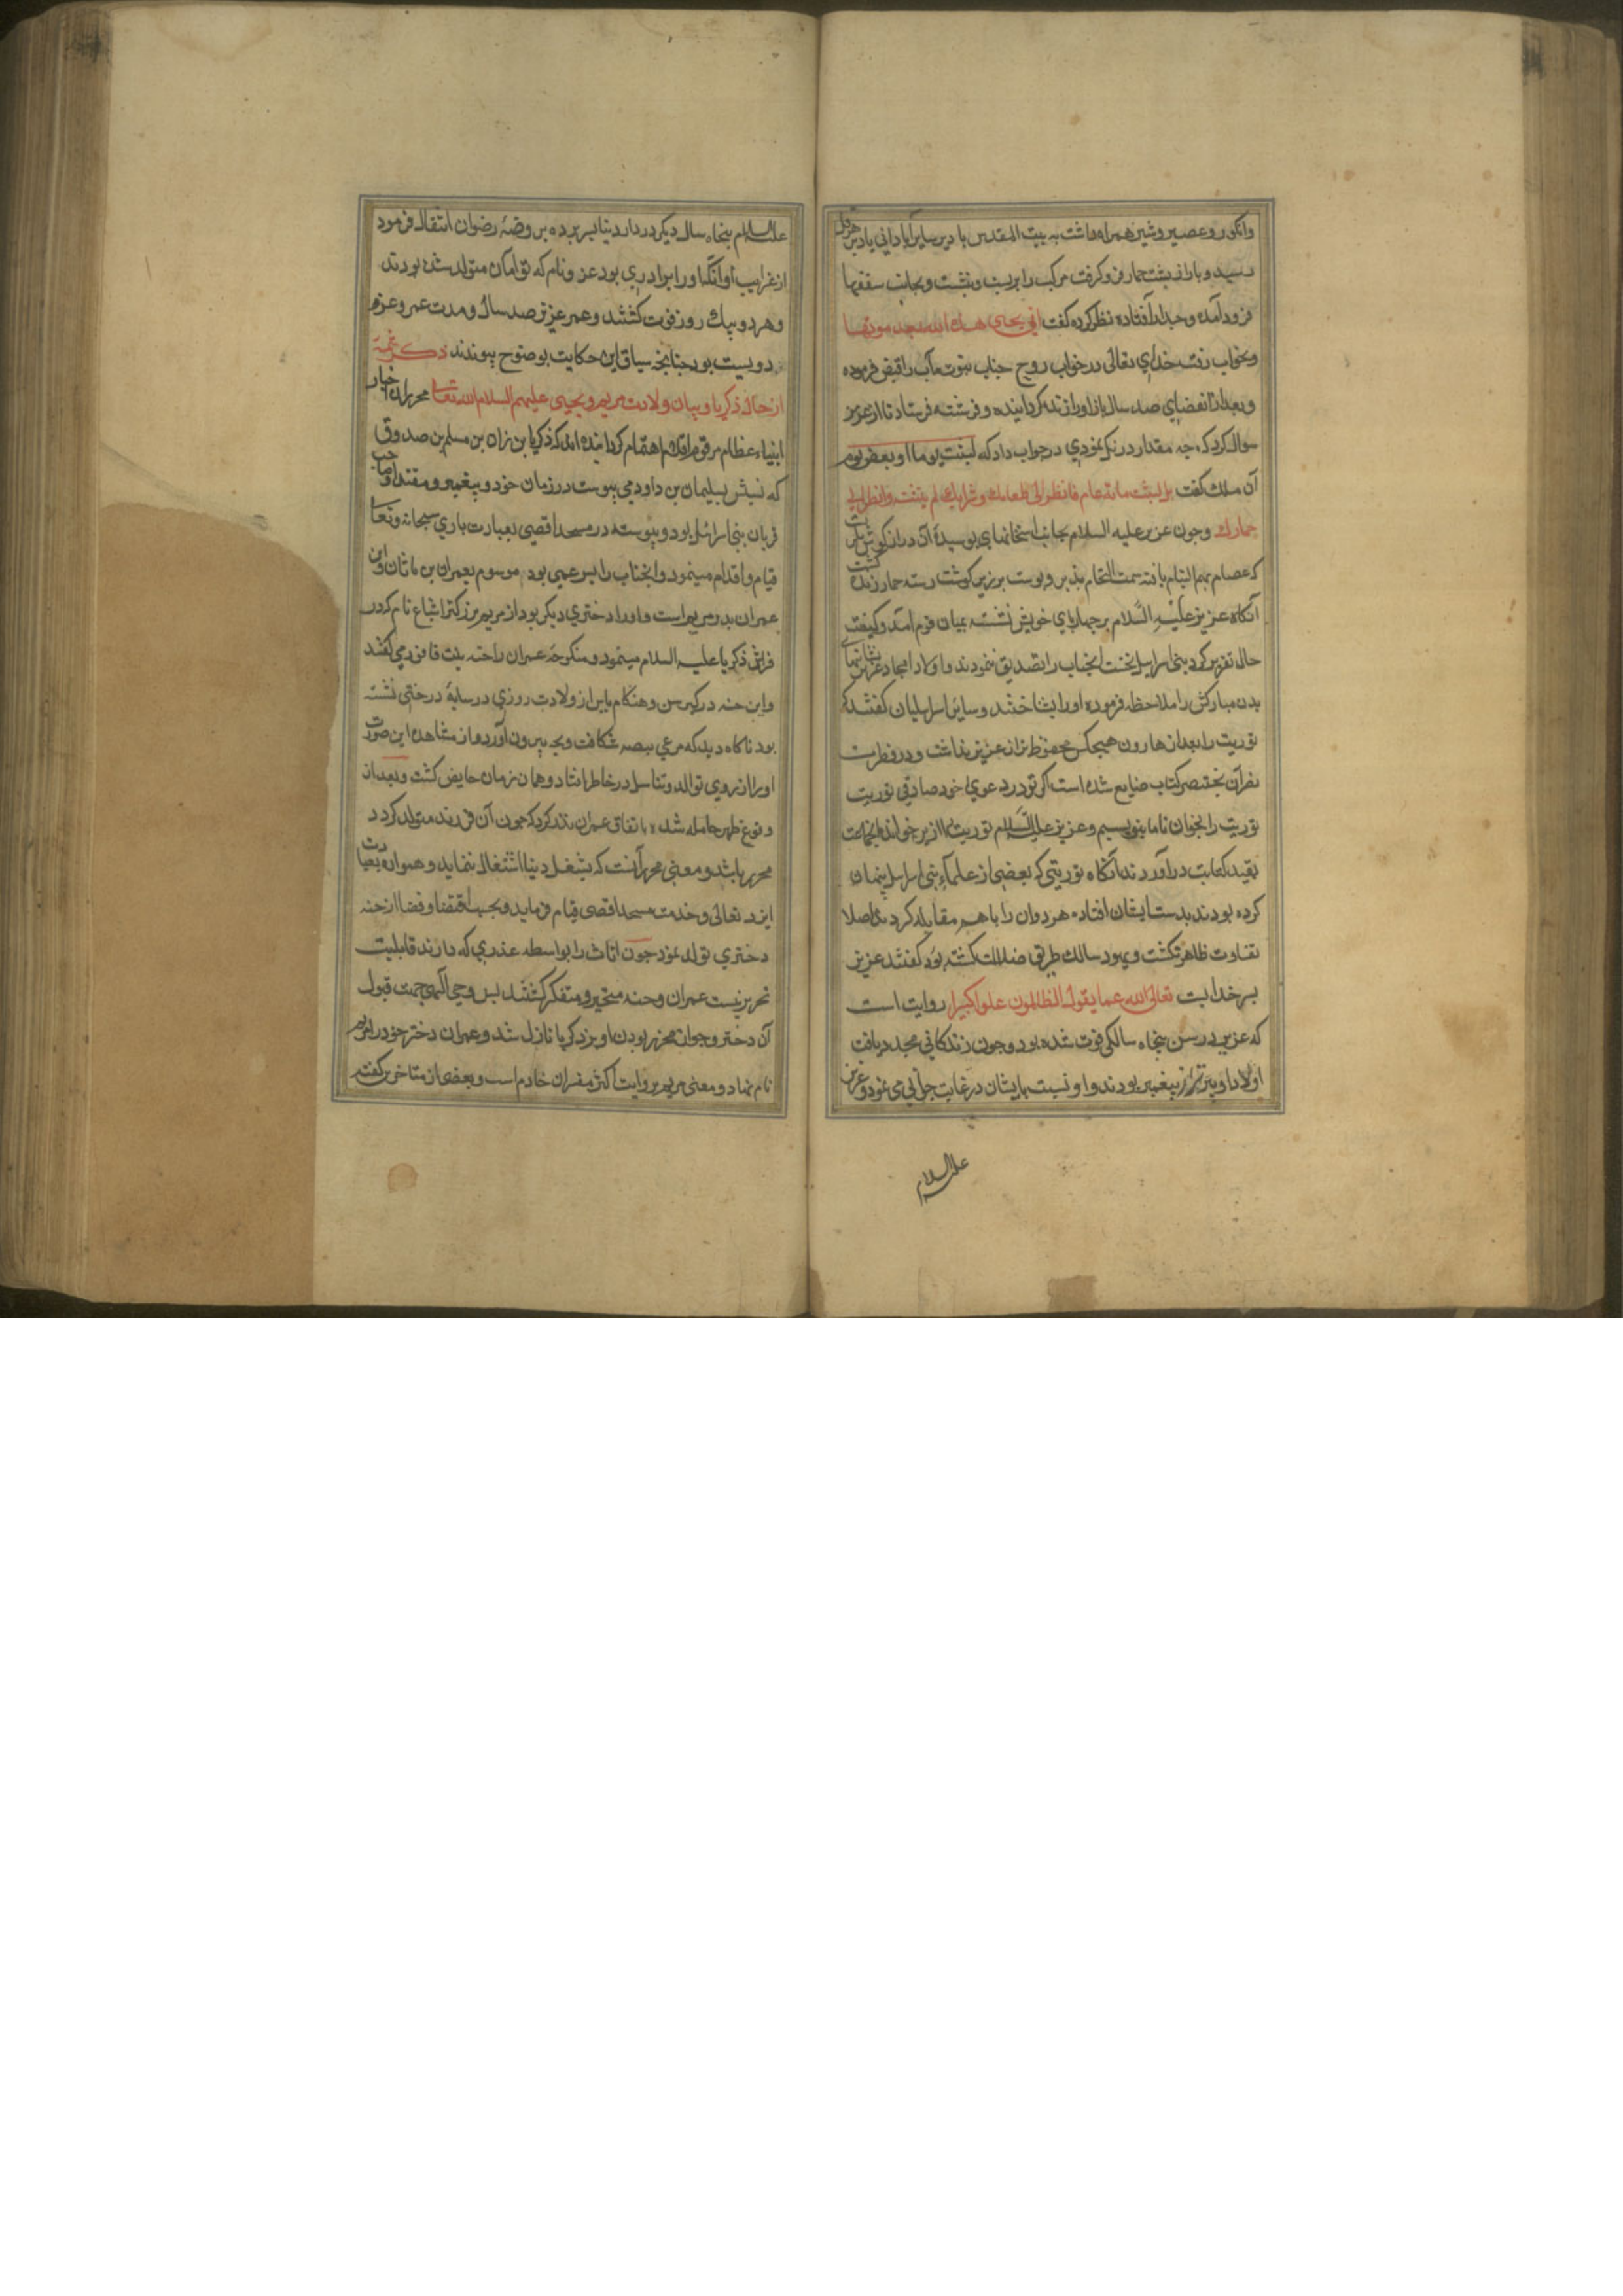 وانکور و عصیر و شیر همراه داشت به بیت المقدس یا دیر سایرآباد انی یا دیر هرقل
رسید و بار از پشت حمار فرو کرفت مرکب را بر بست و نشست و بجانب سقفها
فرود آمده و جدار افتاده نظر کرده کفت انی یحیی هذه الله بعد موتها
و بخواب رفت خدای تعالی در خواب روح جناب نبوت مآب را قبض فرموده
و بعد از انقضای صد سال باز او را زنده کردانیده و فرشته فرستاد تا از عزیر
سوال کرد که چه مقدار درنک نمودی در جواب داد که لبثت یوما او بعض یوم
آن ملک کفت بل لبثت مائة عام فانظر الی طعامک و شرابک لم یتسنه وانظر الی
حمارک و چون عزیر علیه السلام بجانب استخانهای پوسیدهٔ آن دراز کوش نکریست
که عصام بهم التیام یافته سمت التحام پذیر و پوست بر زبر کوشت رسته حمار زنده کشت
آنکاه عزیر علیه السلام بر چهارپای خویش نشسته بمیان قوم آمد و کیفیت
حال تقریر کرد بنی اسرایل نخست انجناب را تصدیق ننمودند و اولاد امجاد عزیر نشانهای
بدن مبارکش را ملاحظه فرموده او را بشناختند و سایر اسرایلیان کفتند که
توریت را بعد از هارون هیچکس محفوظ تر از عزیر نداشت و در فطرت
نفرآن بختنصر کتاب ضایع شده است اکر تو در دعوی خود صادقی توریت
توریت را بخوان تا ما بنویسیم و عزیر علیه السلام توریت را از بر خواند و انجماعت
بقید کتابت در آوردند آنکاه توریتی که بعضی از علماء بنی اسرایل پنهان
کرده بودند بدست ایشان افتاده هر دوان را با هم مقابله کردند اصلا
تفاوت ظاهر نکشت و یهود سالک طریق ضلالت کشته بود کفتند عزیر
پسر خدایت تعالی الله عما یقول الظالمون علوا کبیرا روایت است
که عزیر در سن پنجاه سالکی فوت شده بود و چون زندکانی مجدد یافت
اولاد او پیرتر از پیغمبر بودند و او نسبت بایشان در غایت جوانی می نمود و عزیر
علیه السلام
علیه السلام پنجاه سال دیکر در دار دنیا بسر برده بروضهٔ رضوان انتقال فرمود
از غرایب اوانکه او را برادری بود عزر و نام که توامان متولد شده بودند
و هر دو بیک روز فوت کشتند و عمر عزیر صد سال و مدت عمر و عزره
دویست بود چنانچه سیاق این حکایت بوضوح پیوندند ذکر شمهٔ
از حال ذکریا و بیان ولادت مریم و یحیی علیهم السلام الله تعالی محرران اخبار
انبیاء عظام مرقوم اقلام اهتمام کردانیده اند که ذکریا بن زان بن مسلم بن صدوق
که نسبش بسلیمان بن داود می پیوست در زمان خود و پیغمبر و مقتدا و صاحب
قربان بنی اسرائیل بود و پیوسته در مسجد اقصی بعبارت باری سبحانه و تعالی
قیام و اقدام مینمود و انجناب را پسر عمی بود موسوم بعمران بن ماثان و این
عمران پدر مریم است و او را دختری دیکر بود از مریم بزرکتر اشباع نام که در
فراش ذکریا علیه السلام مینمود و منکوحهٔ عمران را حنه بنت فاقوز می کفتند
و این حنه در کبر سن و هنکام یاس از ولادت روزی در سایهٔ درختی نشسته
بود ناکاه دید که مرغی بیضه شکافت و بچه بیرون آورد و از مشاهده این صورت
او را آرزوی توالد و تناسل در خاطر افتاد و همان زمان حایض کشت و بعد از
وقوع طهر حامله شده باتفاق عمران نذر کرد که چون آن فرزند متولد کردد
محرر باشد و معنی محرر آنست که بشغل دنیا اشتغال ننماید و همواره بعبادت
ایزد تعالی و خدمت مسجد اقصی قیام فرماید و بحسب اقتضاء قضا از حنه
دختری تولد نمود چون اناث را بواسطه عذری که دارند قابلیت
تحریر نیست عمران و حنه متحیر و متفکر کشتند پس وحی الهی بجهت قبول
آن دختر و جواز محرر بودن او بر ذکریا نازل شد و عمران دختر خود را مریم
نام نهاد و معنی مریم بروایت اکثر مفسران خادم است و بعضی از متاخرین کفته